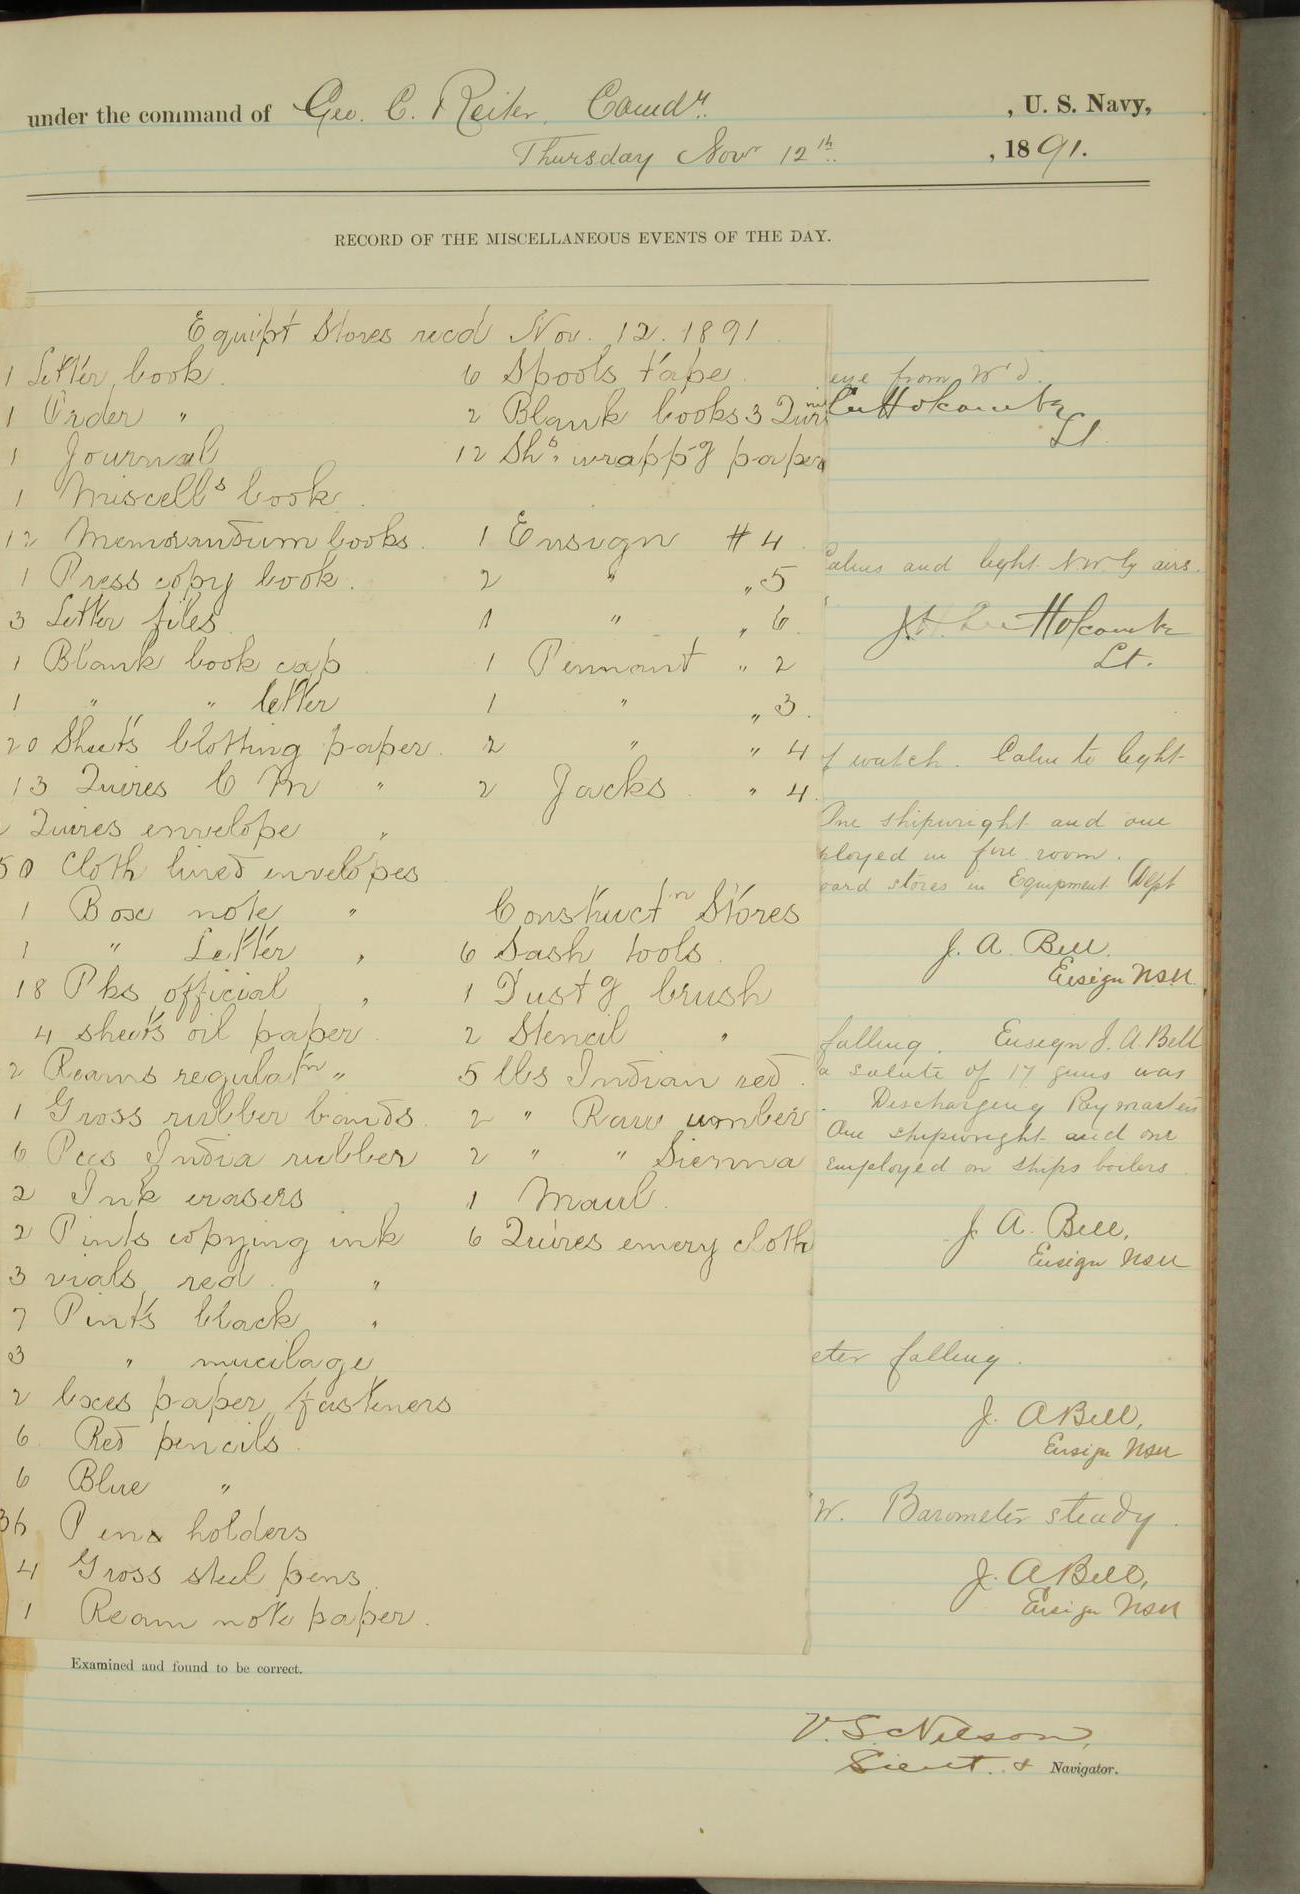 under the command of Geo. C. Reiter, Comdr. , U. S. Navy,
Thursday Nov 12th , 1891.
RECORD OF THE MISCELLANEOUS EVENTS OF THE DAY.
Equipt Stores recd Nov. 12. 1891
1 Letter book
1 Order "
1 Journal
1 Miscells book
12 Memorandum books
1 Press copy book
3 Letter files
1 Blank book cap
1 " " letter
20 Sheets blotting paper
13 Quires C M "
Quires envelope "
50 Cloth lined envelopes
1 Box note "
1 " Letter "
18 Pks official "
4 sheets oil paper
2 Reams regulatn "
1 Gross rubber bands
6 Pces India rubber
2 Ink erasers
2 Pints copying ink
3 vials red "
7 Pints black "
3 " mucilage
2 boxes paper fasteners
6 Red pencils
6 Blue "
36 Pen holders
4 Gross steel pens
1 Ream note paper
6 Spools tape
2 Blank books 3
12 Shs. wrapp'g paper
1 Ensign # 4
2 " " 5
1 " " 6
1 Pennant " 2
1 " " 3
2 " " 4
2 Jacks " 4
Constructn Stores
6 Sash tools
1 Dust'g brush
2 Stencil "
5 lbs Indian red
2 " Raw umber
2 " " Sienna
1 Maul
6 Quires emery cloth
eye from W'd.
Lee Holcombe
Lt
Calms and light NW'ly airs.
J.H. Lee Holcombe
Lt.
f watch. Calm to light
One shipwright and one
ployed in fire room.
oard stores in Equipment Dept
J. A. Bell.
Ensign USN.
falling. Ensign J. A. Bell
a salute of 17 guns was
Discharging Paymasters
One shipwright and one
employed on ships boilers.
J. A. Bell,
Ensign USN
eter falling.
J. A Bell,
Ensign USN
W. Barometer steady.
J. A Bell,
Ensign USN
Examined and found to be correct.
V. S. Nelson,
Lieut. & Navigator.